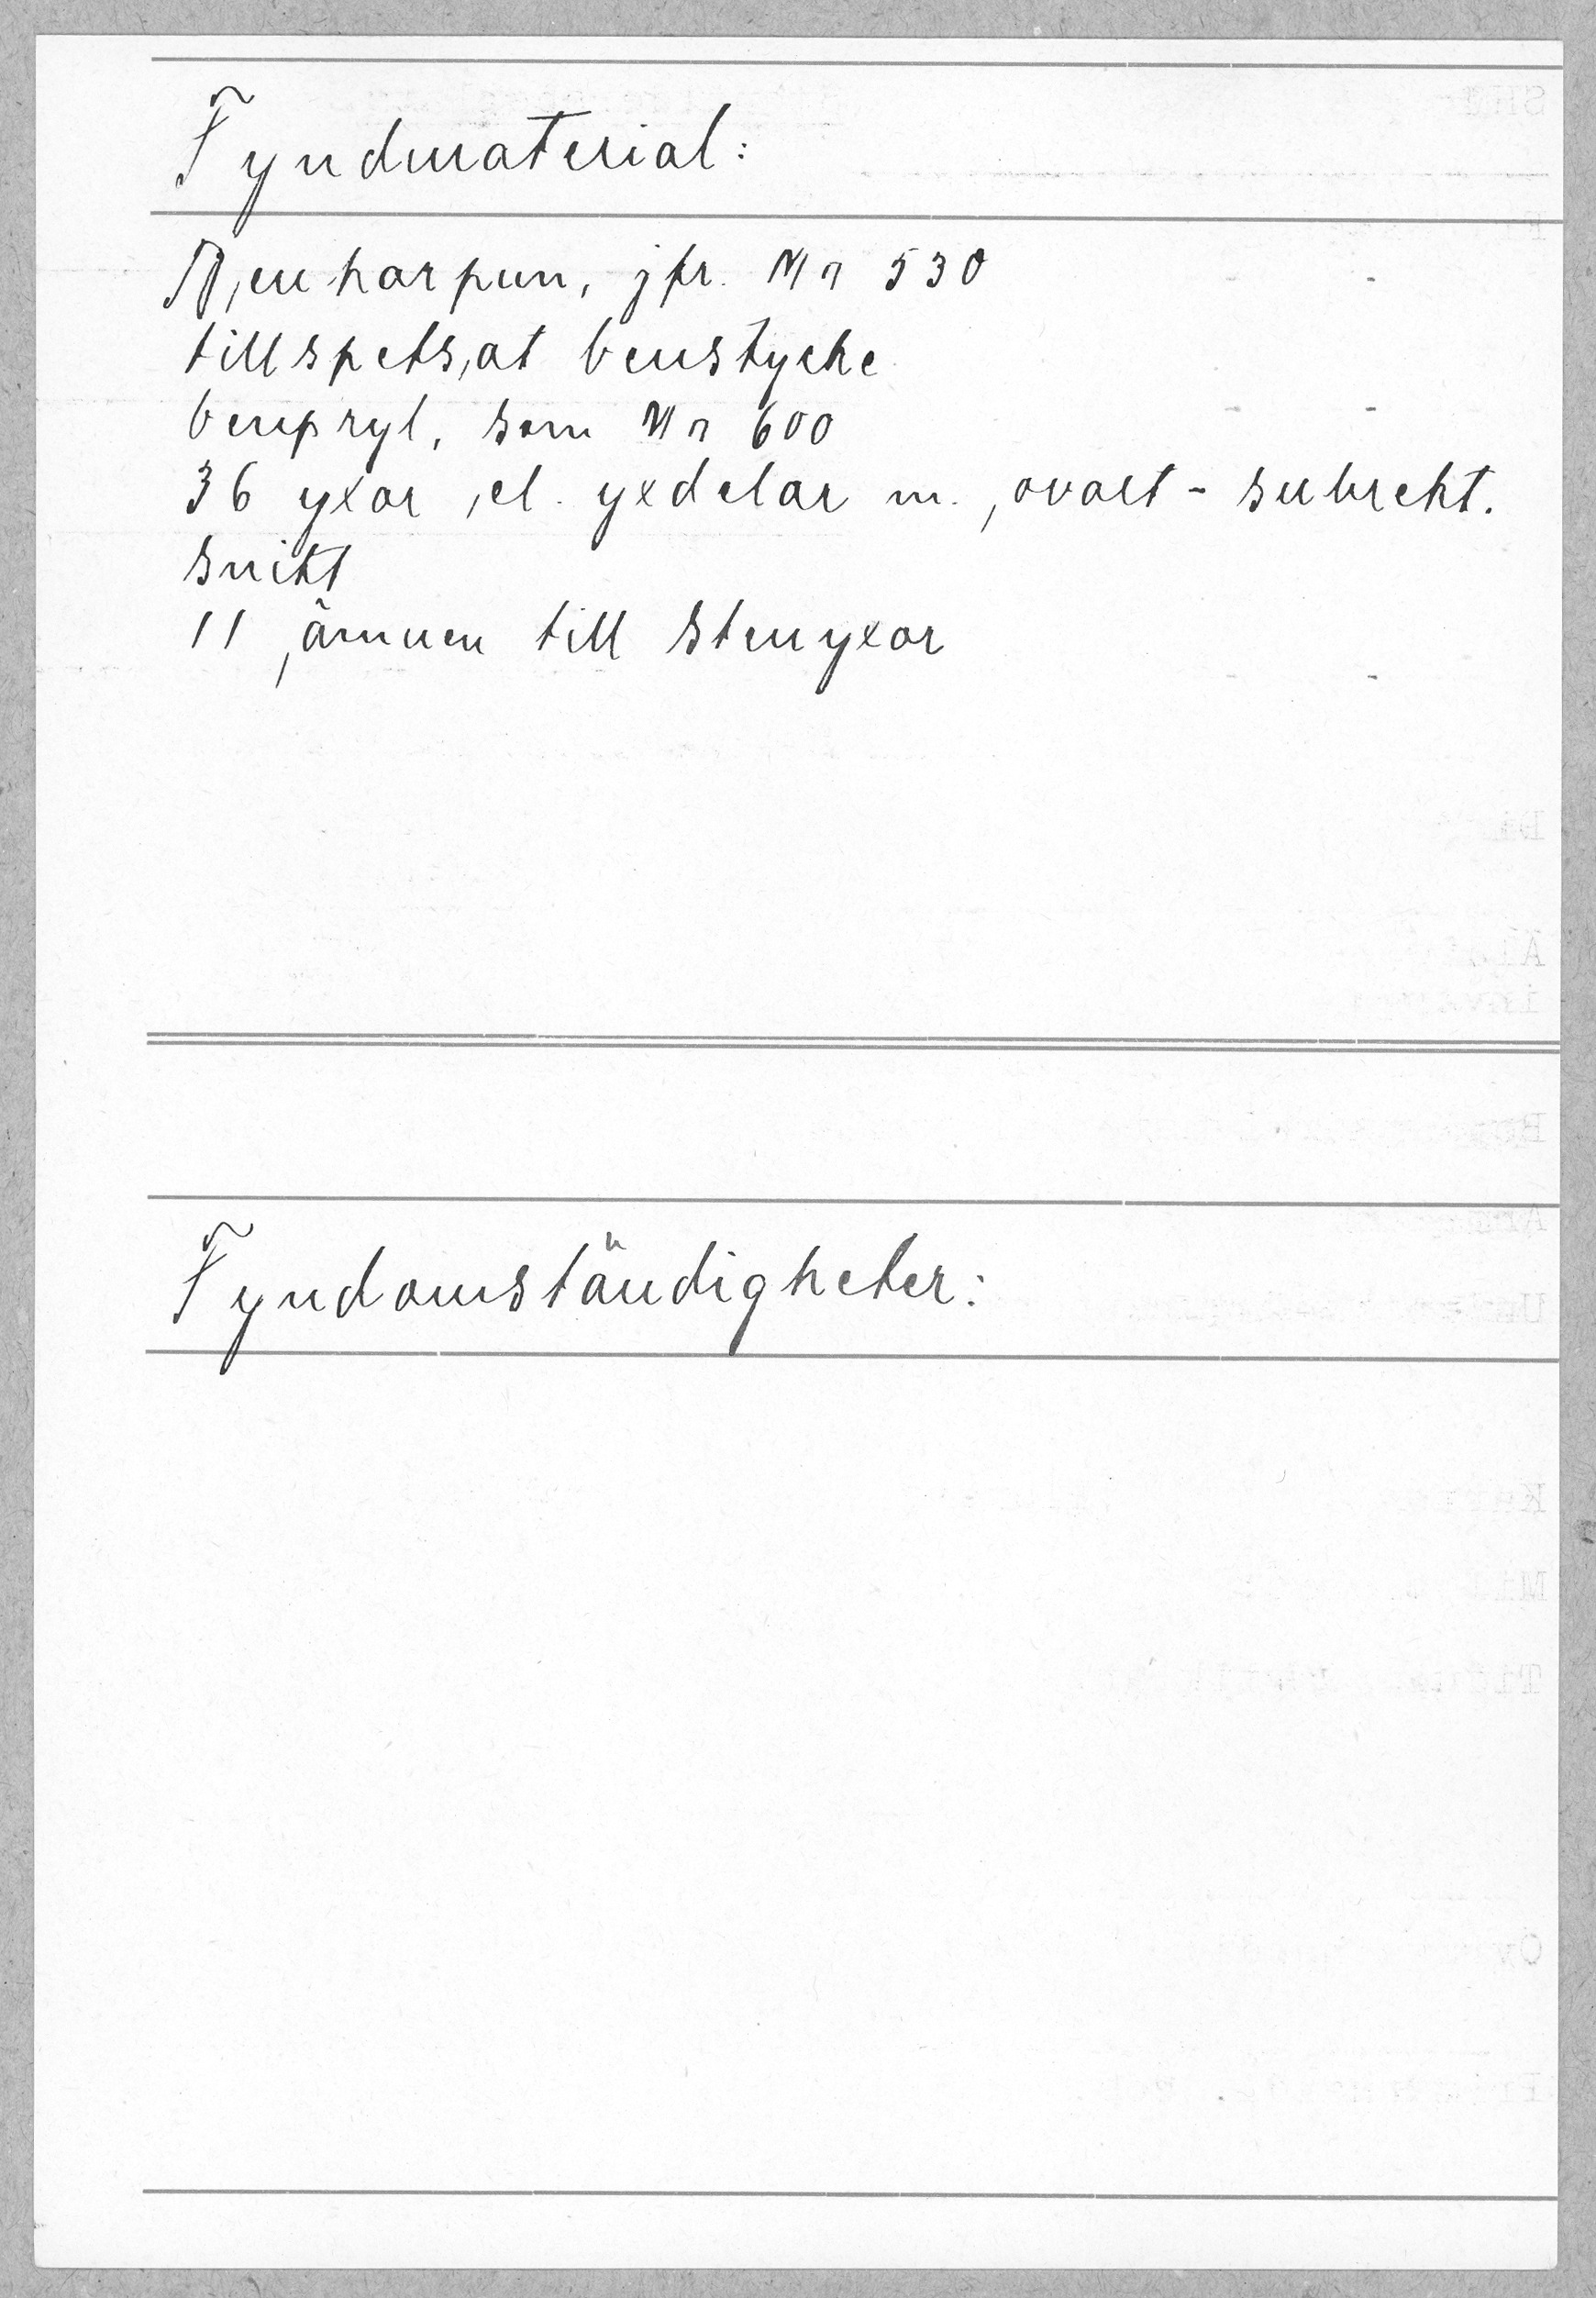 Fyndmaterial:
Benharpun, jfr. Mn 530
tillspetsat benstycke
benpryl, som Mn 600
36 yxor el. yxdelar m. ovalt - subrekt.
snitt
11 ämnen till stenyxor
Fyndomständigheter: